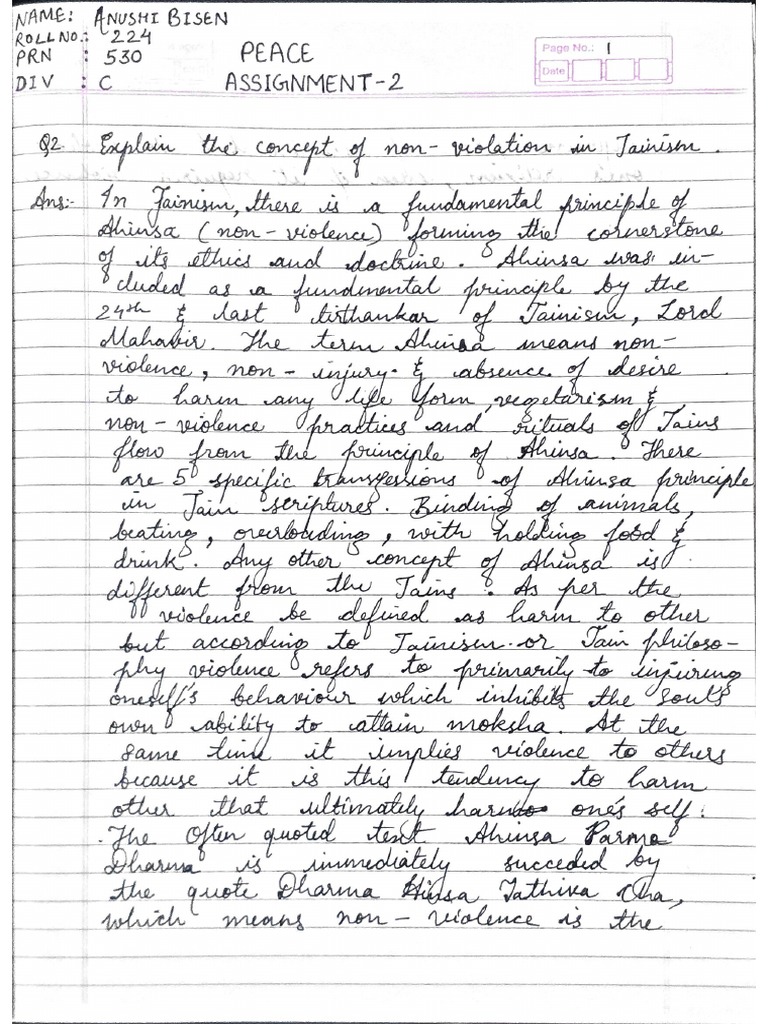 NAME: ANUSHI BISEN
ROLL NO.: 224
PRN : 530
DIV : C
PEACE
ASSIGNMENT-2
Page No.: 1
Date
Q2. Explain the concept of non-violation in Jainism.
Ans:- In Jainism, there is a fundamental principle of
Ahinsa (non-violence) forming the cornerstone
of its ethics and doctrine. Ahinsa was in-
cluded as a fundmental principle by the
24th & last tirthankar of Jainism, Lord
Mahavir. The term Ahinsa means non-
violence, non-injury & absence of desire
to harm any life form, vegetarism &
non-violence practices and rituals of Jains
flow from the principle of Ahinsa. There
are 5 specific transgessions of Ahinsa principle
in Jain scriptures. Binding of animals,
beating, overloading, with holding food &
drink. Any other concept of Ahinsa is
different from the Jains. As per the
violence be defined as harm to other
but according to Jainism or Jain philoso-
phy violence refers to primarily to injuring
oneself's behaviour which inhibits the souls
own ability to attain moksha. At the
same time it implies violence to others
because it is this tendency to harm
other that ultimately harms one's self.
The Often quoted text Ahinsa Parmo
Dharma is immediately succeded by
the quote Dharma Hinsa Tathiva Cha,
which means non-violence is the